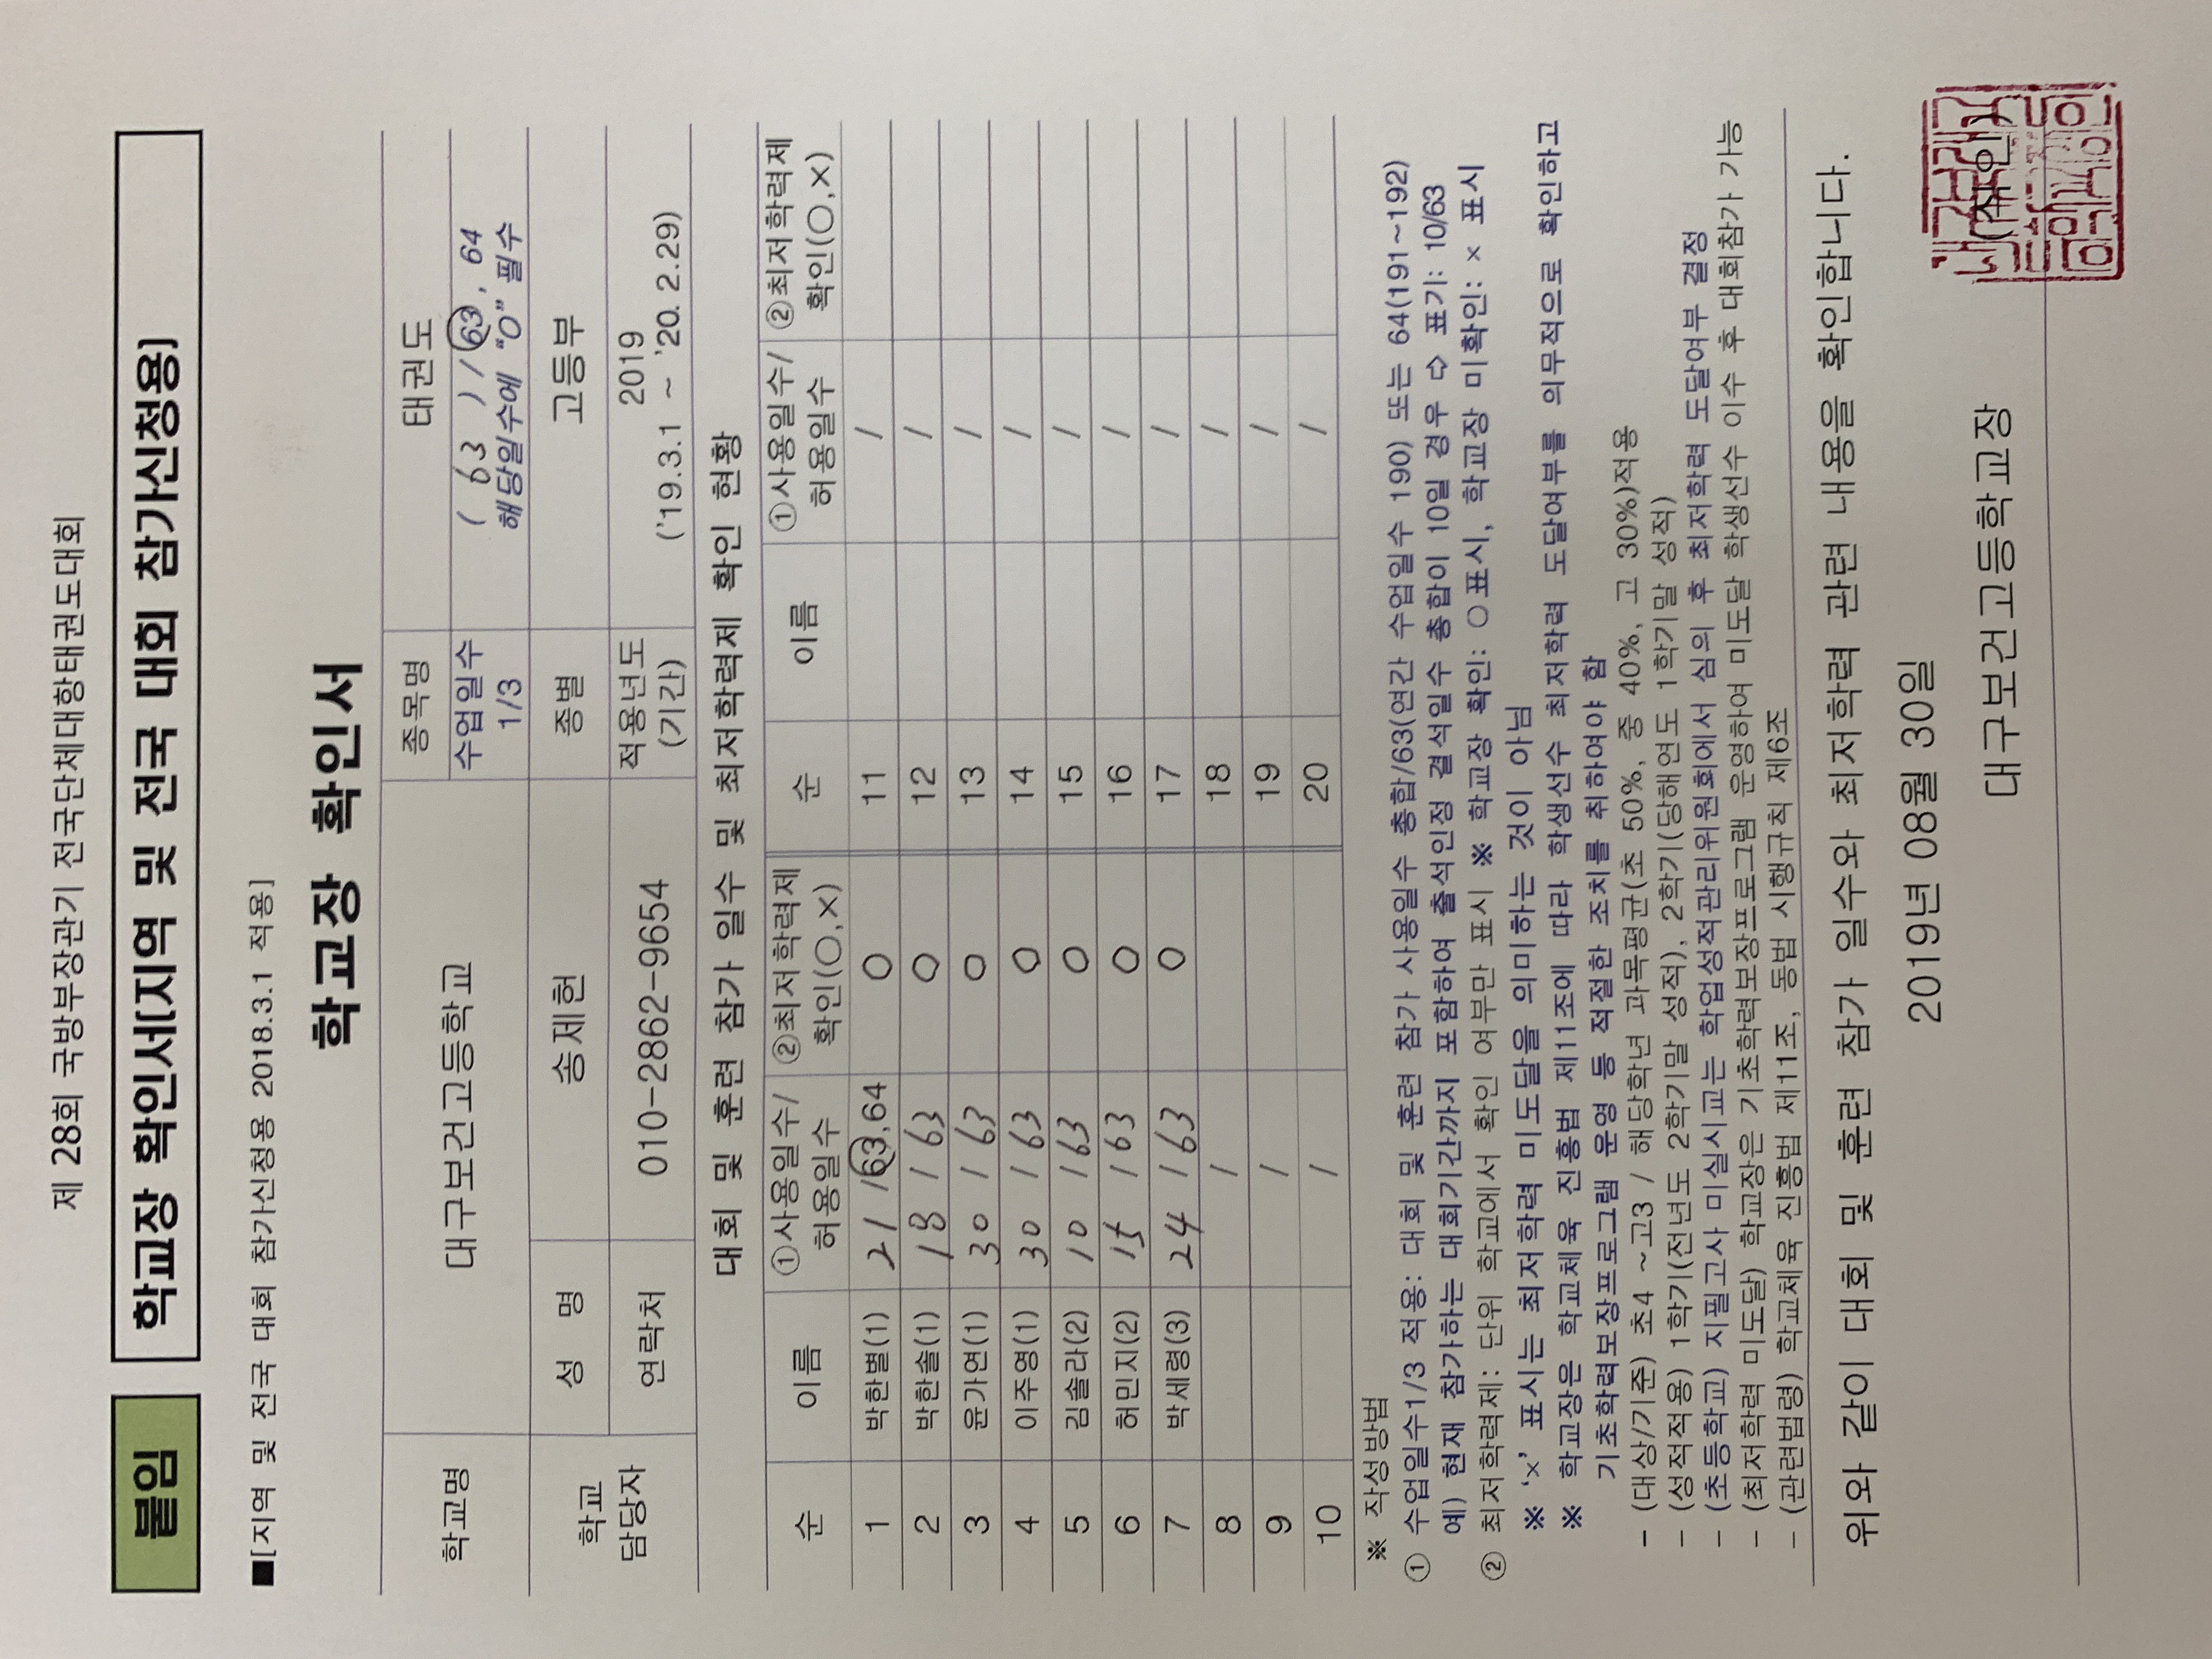 제 28회 국방부장관기 전국단체대항태권도대회
붙임 학교장 확인서(지역 및 전국 대회 참가신청용)
■[지역 및 전국 대회 참가신청용 2018.3.1 적용]
학교장 확인서
학교명 대구보건고등학교 종목명 태권도
수업일수 1/3 ( 63 ) / 63, 64
해당일수에 "O" 필수
학교 담당자 성 명 송제헌 종별 고등부
연락처 010-2862-9654 적용년도 (기간) 2019
('19.3.1 ~ '20. 2.29)
대회 및 훈련 참가 일수 및 최저학력제 확인 현황
순 이름 ①사용일수/허용일수 ②최저학력제 확인(○,×) 순 이름 ①사용일수/허용일수 ②최저학력제 확인(○,×)
1 박한별(1) 21 /63,64 O 11 /
2 박한솔(1) 18 / 63 O 12 /
3 윤가연(1) 30 / 63 O 13 /
4 이주영(1) 30 / 63 O 14 /
5 김솔라(2) 10 / 63 O 15 /
6 허민지(2) 15 / 63 O 16 /
7 박세령(3) 24 / 63 O 17 /
8 / 18 /
9 / 19 /
10 / 20 /
※ 작성방법
① 수업일수1/3 적용: 대회 및 훈련 참가 사용일수 총합/63(연간 수업일수 190) 또는 64(191~192)
예) 현재 참가하는 대회기간까지 포함하여 출석인정 결석일수 총합이 10일 경우 ⇨ 표기: 10/63
② 최저학력제: 단위 학교에서 확인 여부만 표시 ※ 학교장 확인: ○표시, 학교장 미확인: × 표시
※ '×' 표시는 최저학력 미도달을 의미하는 것이 아님
※ 학교장은 학교체육 진흥법 제11조에 따라 학생선수 최저학력 도달여부를 의무적으로 확인하고
기초학력보장프로그램 운영 등 적절한 조치를 취하여야 함
- (대상/기준) 초4 ~고3 / 해당학년 과목평균(초 50%, 중 40%, 고 30%)적용
- (성적적용) 1학기(전년도 2학기말 성적), 2학기(당해연도 1학기말 성적)
- (초등학교) 지필고사 미실시교는 학업성적관리위원회에서 심의 후 최저학력 도달여부 결정
- (최저학력 미도달) 학교장은 기초학력보장프로그램 운영하여 미도달 학생선수 이수 후 대회참가 가능
- (관련법령) 학교체육 진흥법 제11조, 동법 시행규칙 제6조
위와 같이 대회 및 훈련 참가 일수와 최저학력 관련 내용을 확인합니다.
2019년 08월 30일
대구보건고등학교장 (직인)